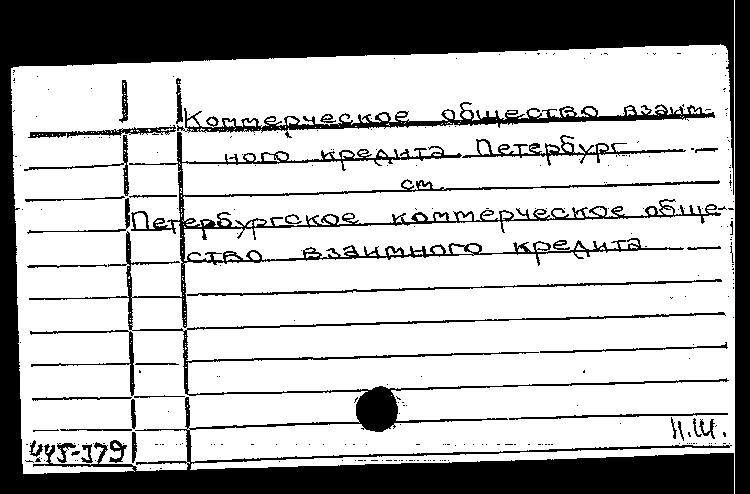 Коммерческое общество взаим-
ного кредита. Петербург
см.
Петербургское коммерческое обще-
ство взаимного кредита
Н.Ш.
445-379